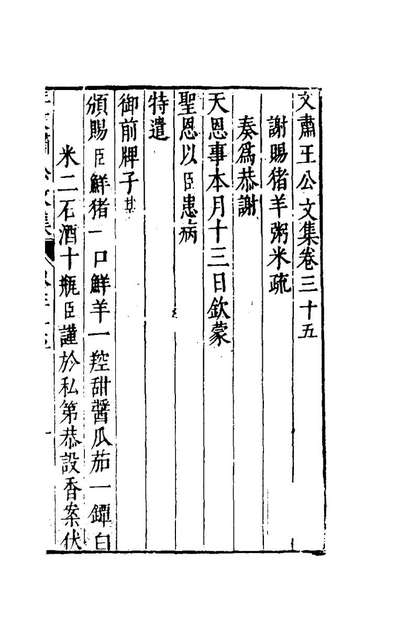 文肅王公文集卷三十五
謝賜猪羊粥米疏
奏爲恭謝
天恩事本月十三日欽蒙
聖恩以臣患病
特遣
御前牌子某
頒賜臣鮮猪一口鮮羊一羫甜醬瓜茄一罈白
米二石酒十瓶臣謹於私第恭設香案伏